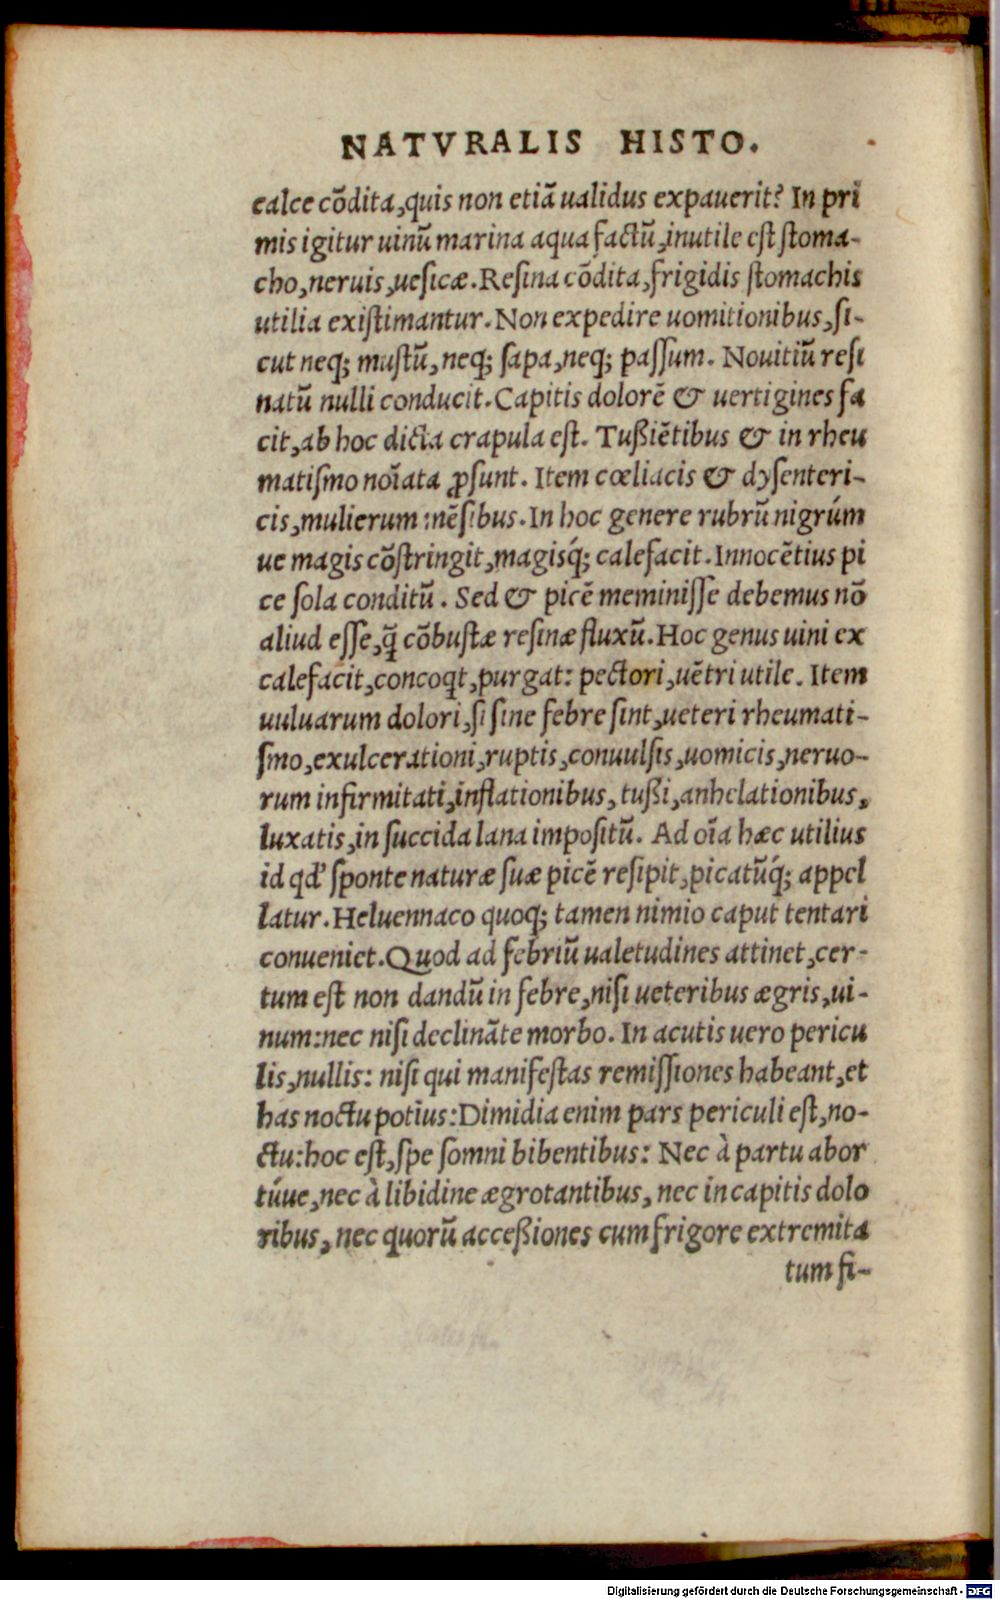 NATVRALIS HISTO.
calce cõdita, quis non etiã ualidus expauerit? In pri
mis igitur uinũ marina aqua factũ, inutile est stoma-
cho, neruis, uesicæ. Resina cõdita, frigidis stomachis
utilia existimantur. Non expedire uomitionibus, si-
cut neq; mustũ, neq; sapa, neq; passum. Nouitiũ resi
natũ nulli conducit. Capitis dolorẽ & uertigines fa
cit, ab hoc dicta crapula est. Tußiẽtibus & in rheu
matismo noĩata ꝓsunt. Item cœliacis & dysenteri-
cis, mulierum mẽsibus. In hoc genere rubrũ nigrúm
ue magis cõstringit, magisq́; calefacit. Innocẽtius pi
ce sola conditũ. Sed & picẽ meminisse debemus nõ
aliud esse, q̃ cõbustæ resinæ fluxũ. Hoc genus uini ex
calefacit, concoqt, purgat: pectori, uẽtri utile. Item
uuluarum dolori, si sine febre sint, ueteri rheumati-
smo, exulcerationi, ruptis, conuulsis, uomicis, neruo-
rum infirmitati, inflationibus, tußi, anhelationibus,
luxatis, in succida lana impositũ. Ad oĩa hæc utilius
id qd' sponte naturæ suæ picẽ resipit, picatũq́; appel
latur. Heluennaco quoq; tamen nimio caput tentari
conueniet. Quod ad febriũ ualetudines attinet, cer-
tum est non dandũ in febre, nisi ueteribus ægris, ui-
num: nec nisi declinãte morbo. In acutis uero pericu
lis, nullis: nisi qui manifestas remissiones habeant, et
has noctu potius: Dimidia enim pars periculi est, no-
ctu: hoc est, spe somni bibentibus: Nec à partu abor
túue, nec à libidine ægrotantibus, nec in capitis dolo
ribus, nec quorũ acceßiones cum frigore extremita
tum fi-
Digitalisierung gefördert durch die Deutsche Forschungsgemeinschaft - DFG